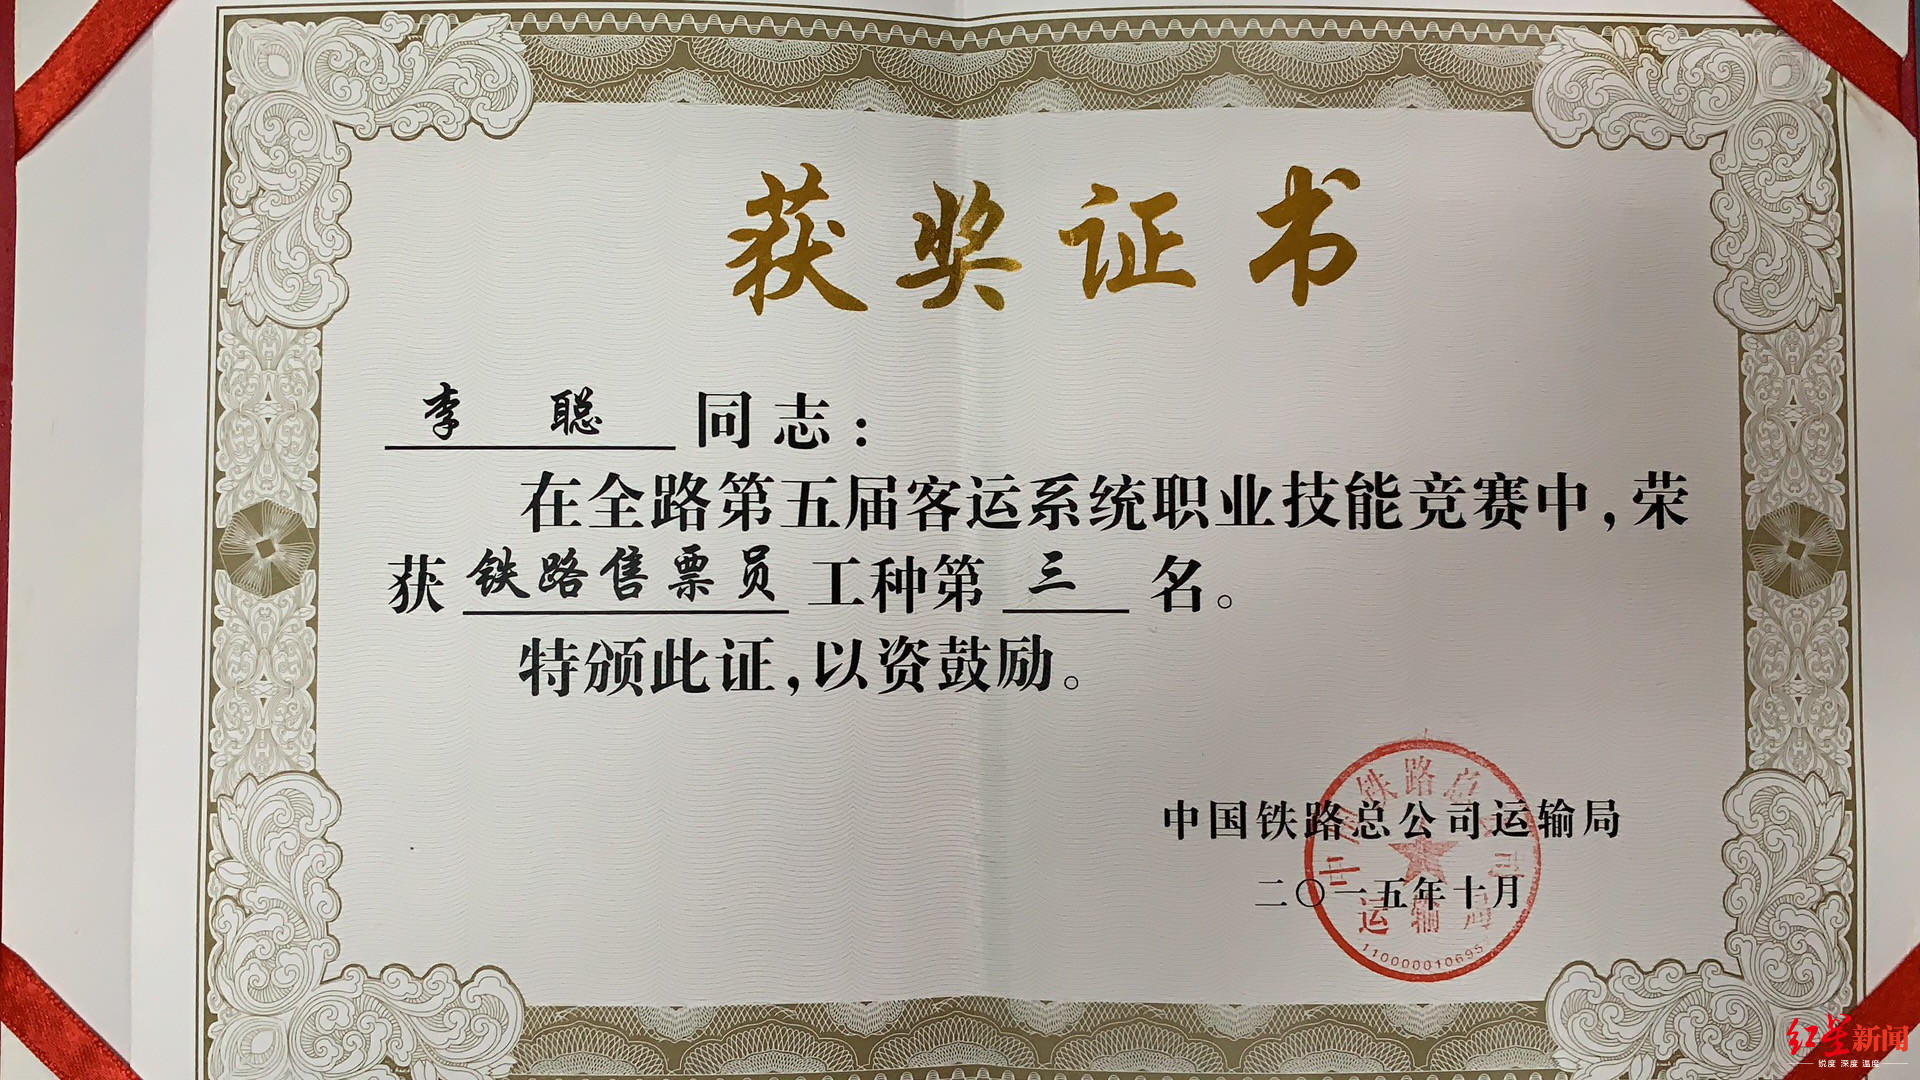 获奖证书
李聪 同志：
在全路第五届客运系统职业技能竞赛中，荣
获 铁路售票员 工种第 三 名。
特颁此证，以资鼓励。
中国铁路总公司运输局
二〇一五年十月
中国铁路总公司
运输局
11000001069５
红星新闻
锐度 深度 温度